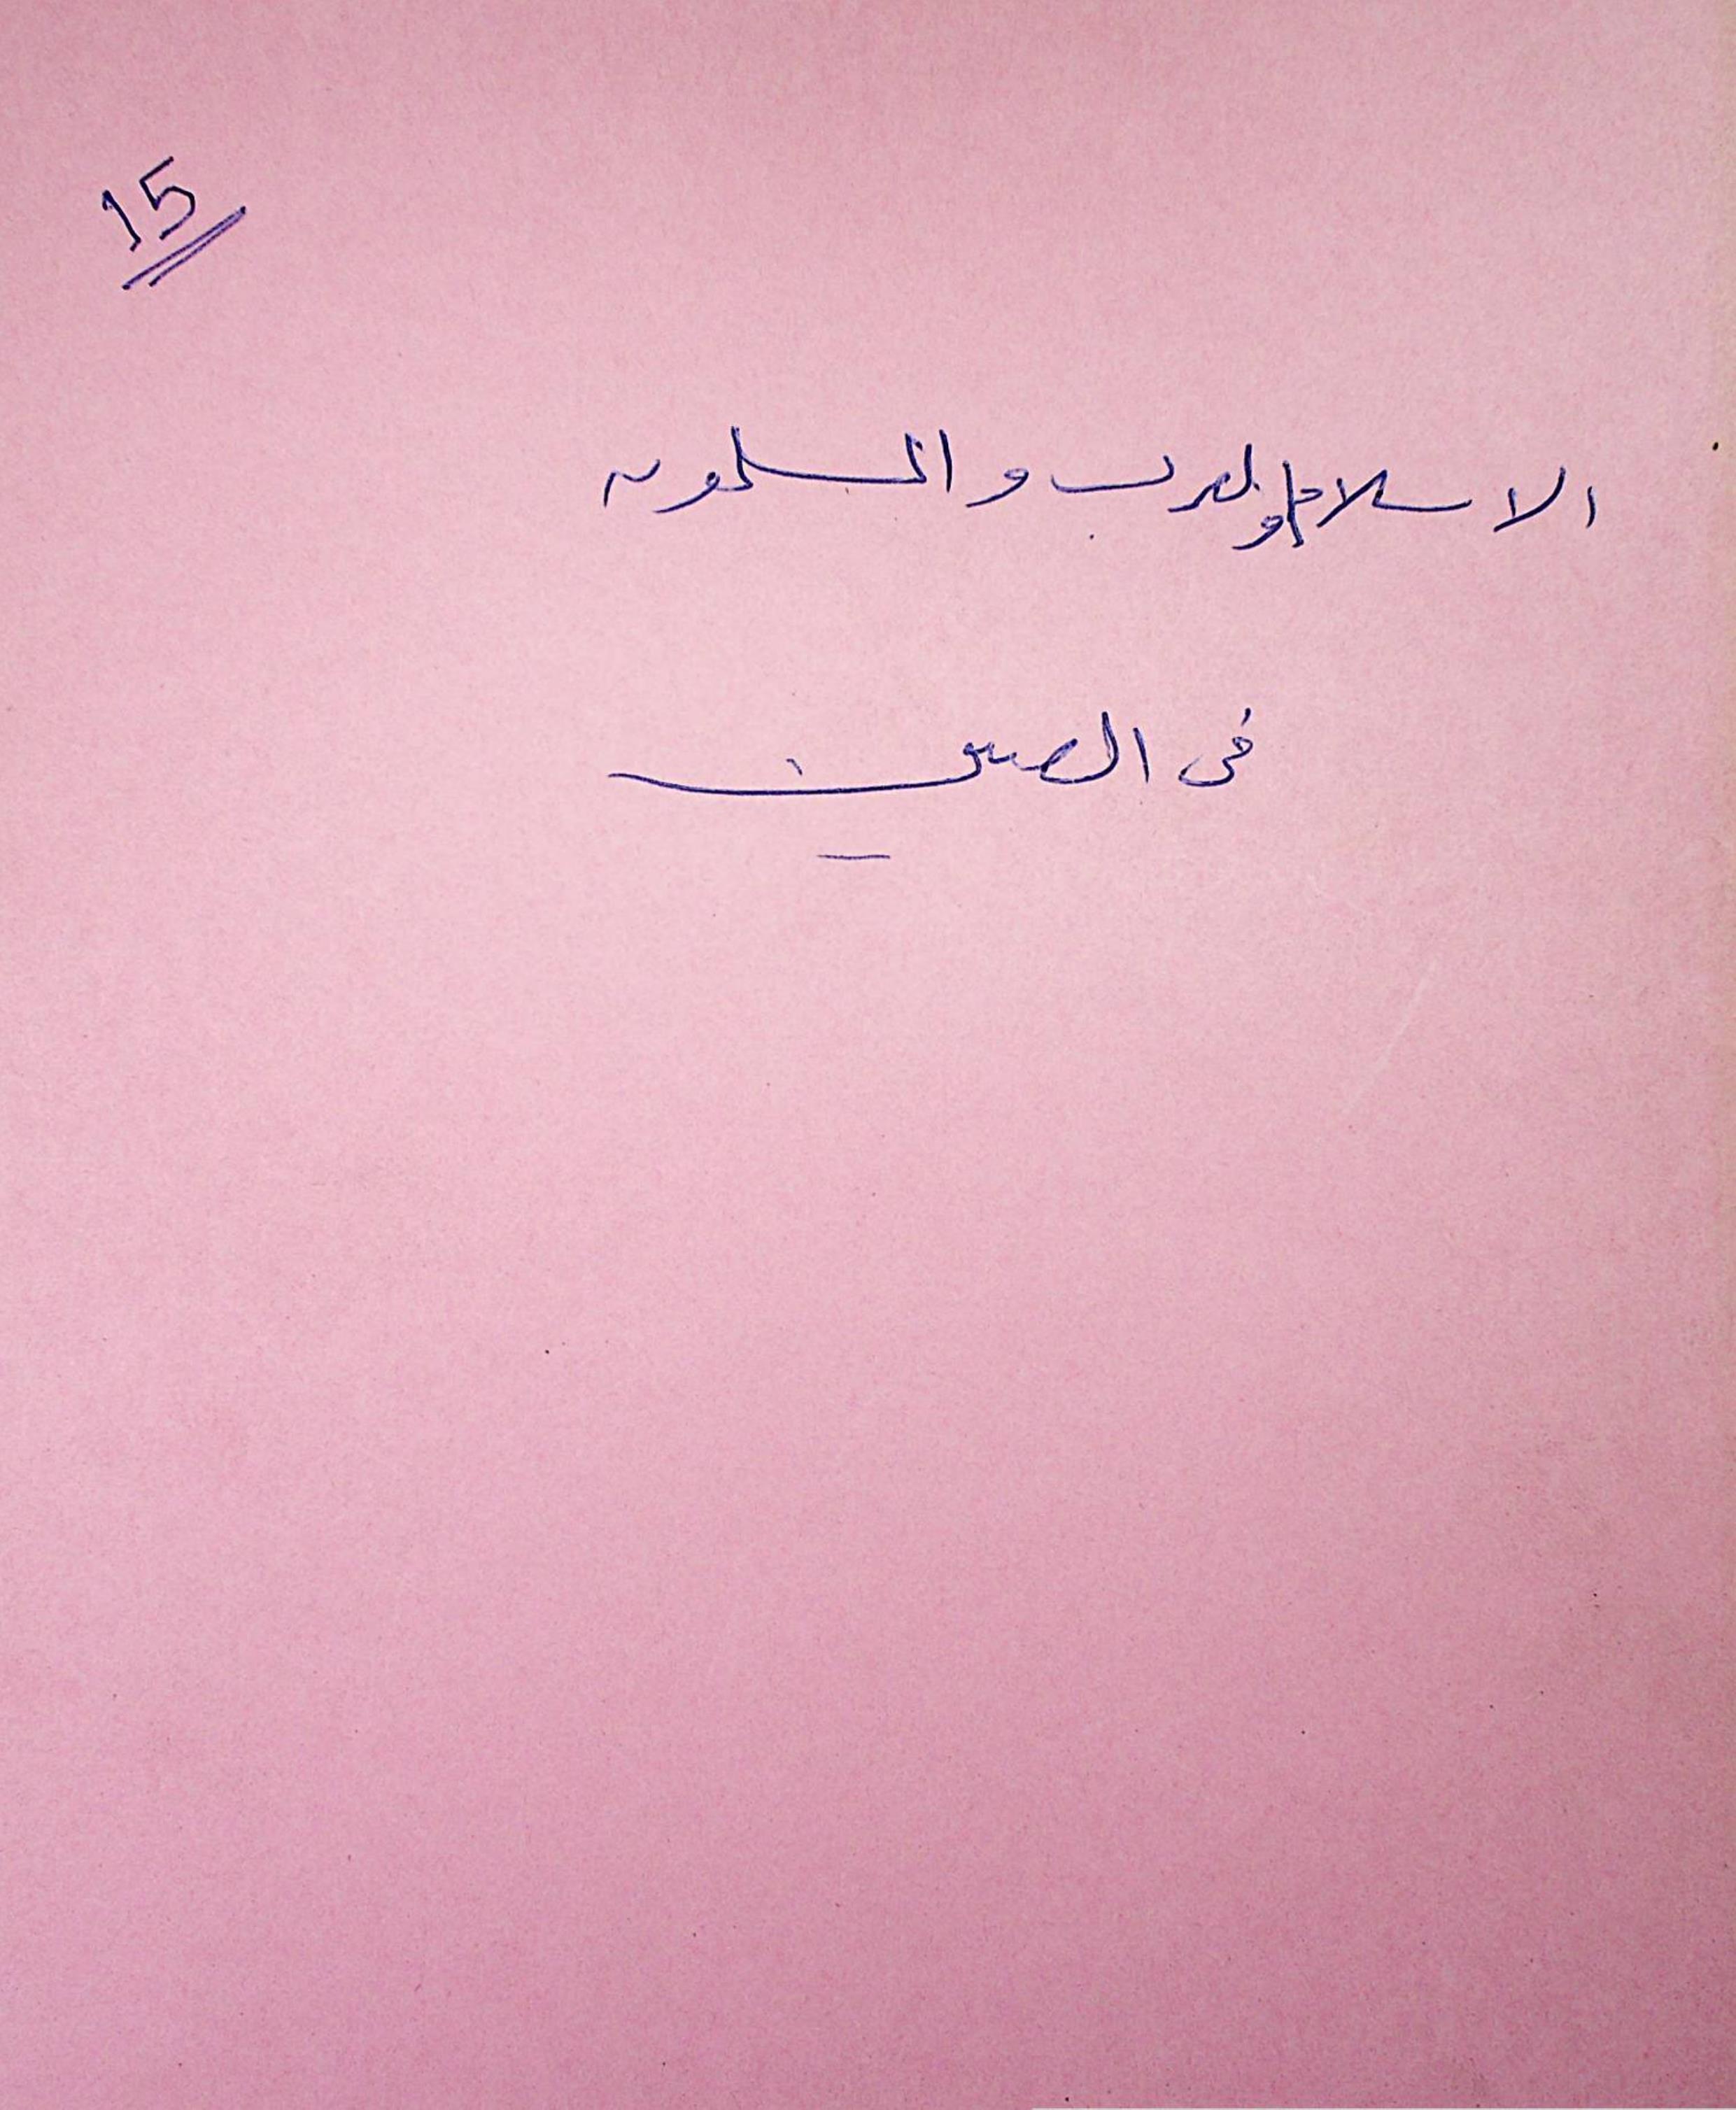 15
الاسلام والعرب والمسلمون
فى الصين